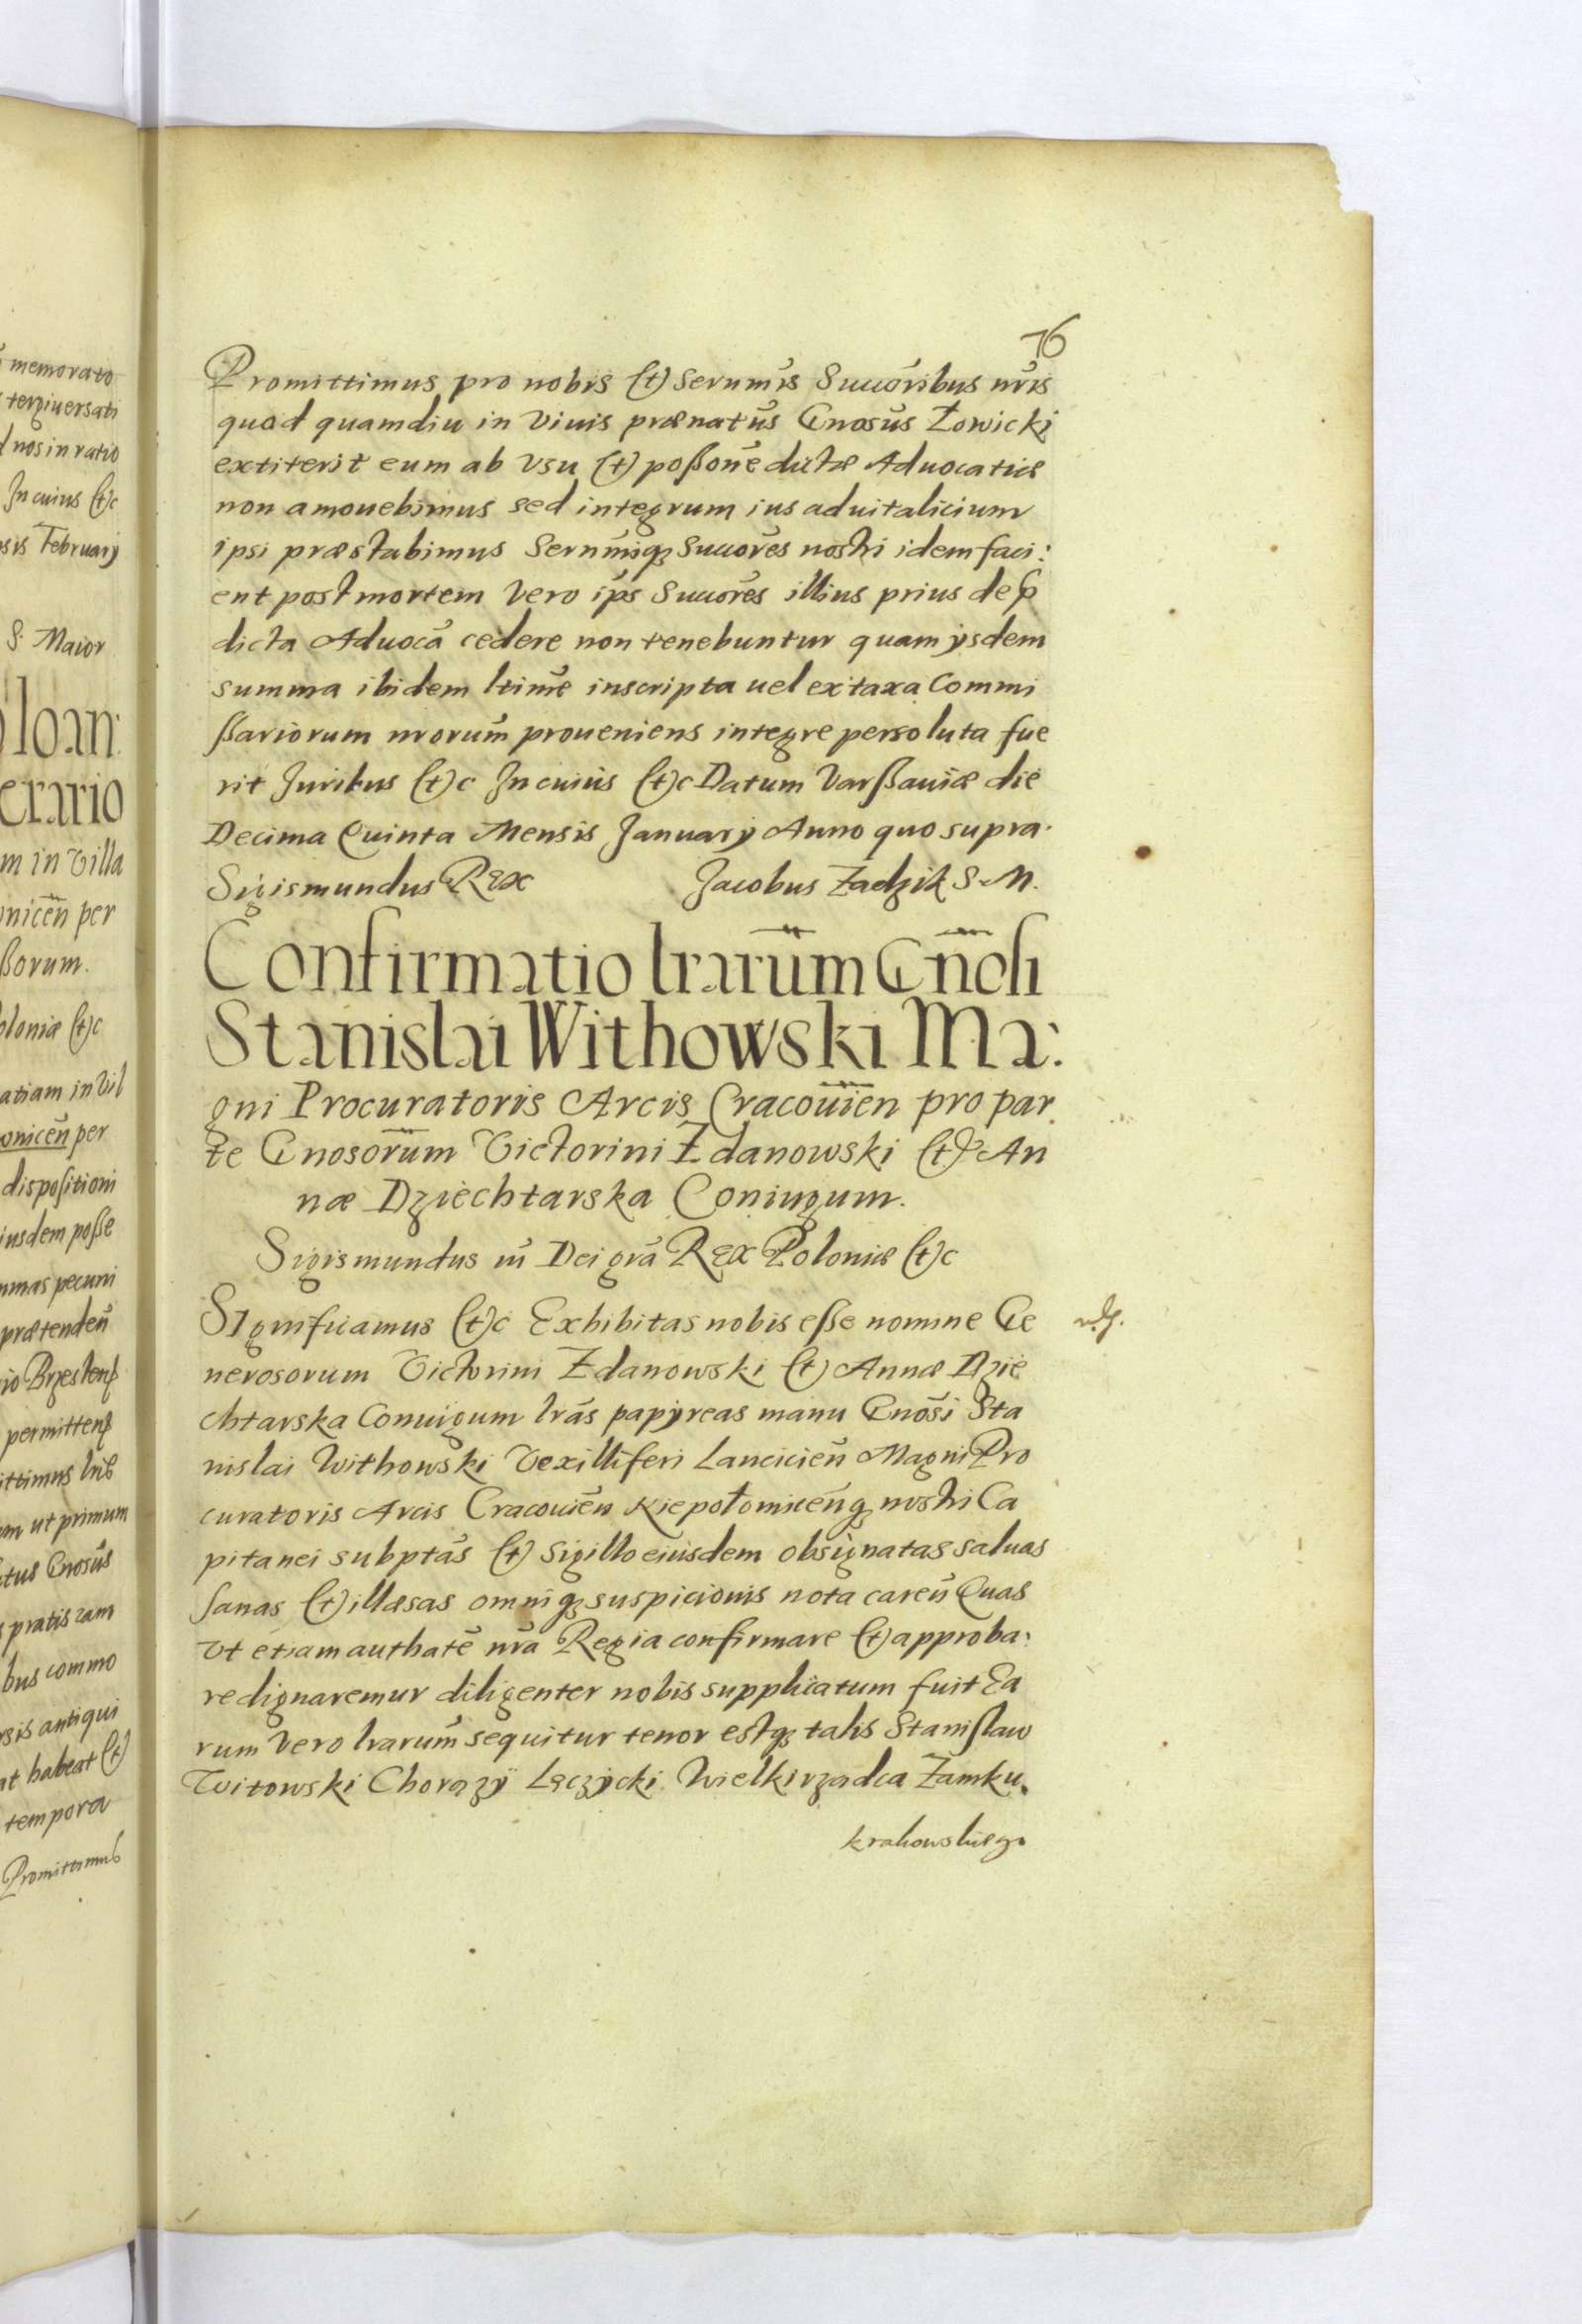 memorato
tergiuersati
d nos in ratio
In cuius (et)c
sis February
S. Maior
Ioan:
erario
m in Villa
nicen̄ per
ßorum.
oloniæ (et)c
atiam in Vil
onicen̄ per
dispositioni
iusdem poße
mmas pecuni
prætenden̄
io Brzesten
permitten
ittimus
um ut primum
tus Gnosus
pratis zam
bus commo
rsis antiqui
at habeat (et)
tempora
Promittimus
76
Promittimus pro nobis (et) Serenmis Succoribus nris
quod quamdiu in Viuis prænatus Gnosus Żowicki
extiterit eum ab Vsu (et) poßone dictæ Aduocatiæ
non amouebimus sed integrum ius aduitalicium
ipsi præstabimus Sernmiq3 Succores nostri idem faci:
ent post mortem Vero ips Succores illius prius de p
dicta Aduoca cedere non tenebuntur quam ysdem
summa ibidem ltime inscripta uel ex taxa Commi
ßariorum nrorum proueniens integre persoluta fue
rit Juribus (et)c In cuius (et)c Datum Varßauiæ die
Decima Quinta Mensis January Anno quo supra.
Sigismundus Rex Jacobus Zadzik S. M.
Confirmatio lrarum Gnosi
Stanislai Withowski Ma:
gni Procuratoris Arcis Cracouien pro par
te Gnosorum Victorini Zdanowski (et) An
næ Dziechtarska Coniugum.
Sigismundus iii Dei gra Rex Poloniæ (et)c
Significamus (et)c Exhibitas nobis eße nomine Ge
nerosorum Victorini Zdanowski (et) Annæ Dzie
chtarska Coniugum lras papyreas manu Gnosi Sta
nislai Withowski Vexilliferi Lancicien Magni Pro
curatoris Arcis Cracouien Niepołomicenq3 nostri Ca
pitanei subptas (et) Sigillo eiusdem obsignatas saluas
sanas (et) illæsas omniq3 suspicionis nota caren Quas
Vt etiam authate nra Regia confirmare (et) approba:
re dignaremur diligenter nobis supplicatum fuit Ea
rum Vero lrarum sequitur tenor estq3 talis Stanisław
Witowski Chorązÿ Łęczÿcki Wielkirządca Zamku
krakowskiego